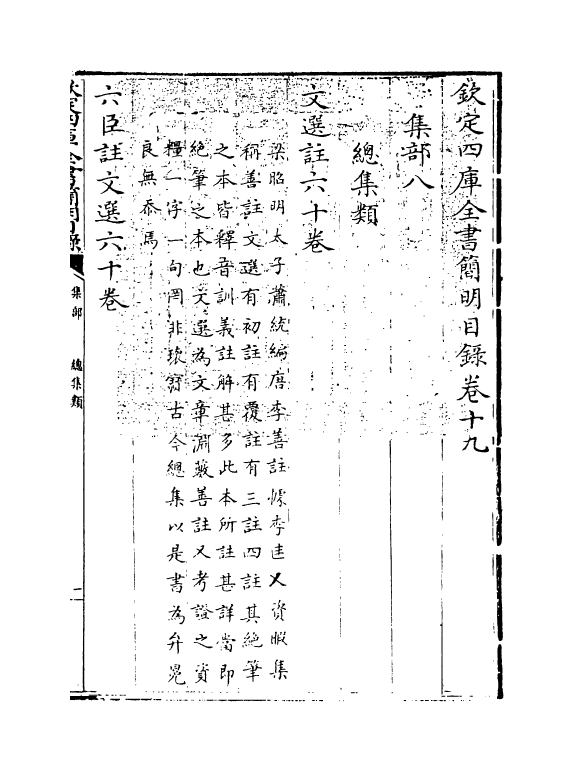 欽定四庫全書簡明目錄卷十九
集部八
總集類
文選註六十卷
梁昭明太子蕭統編唐李善註據李匡乂資暇集
稱善註文選有初註有覆註有三註四註其絶筆
之本皆釋音訓義註解甚多此本所註甚詳當即
絶筆之本也文選為文章淵藪善註又考證之資
糧一字一句罔非瓌寶古今總集以是書為弁冕
良無忝焉
六臣註文選六十卷
欽定四庫全書簡明目錄
集部 總集類